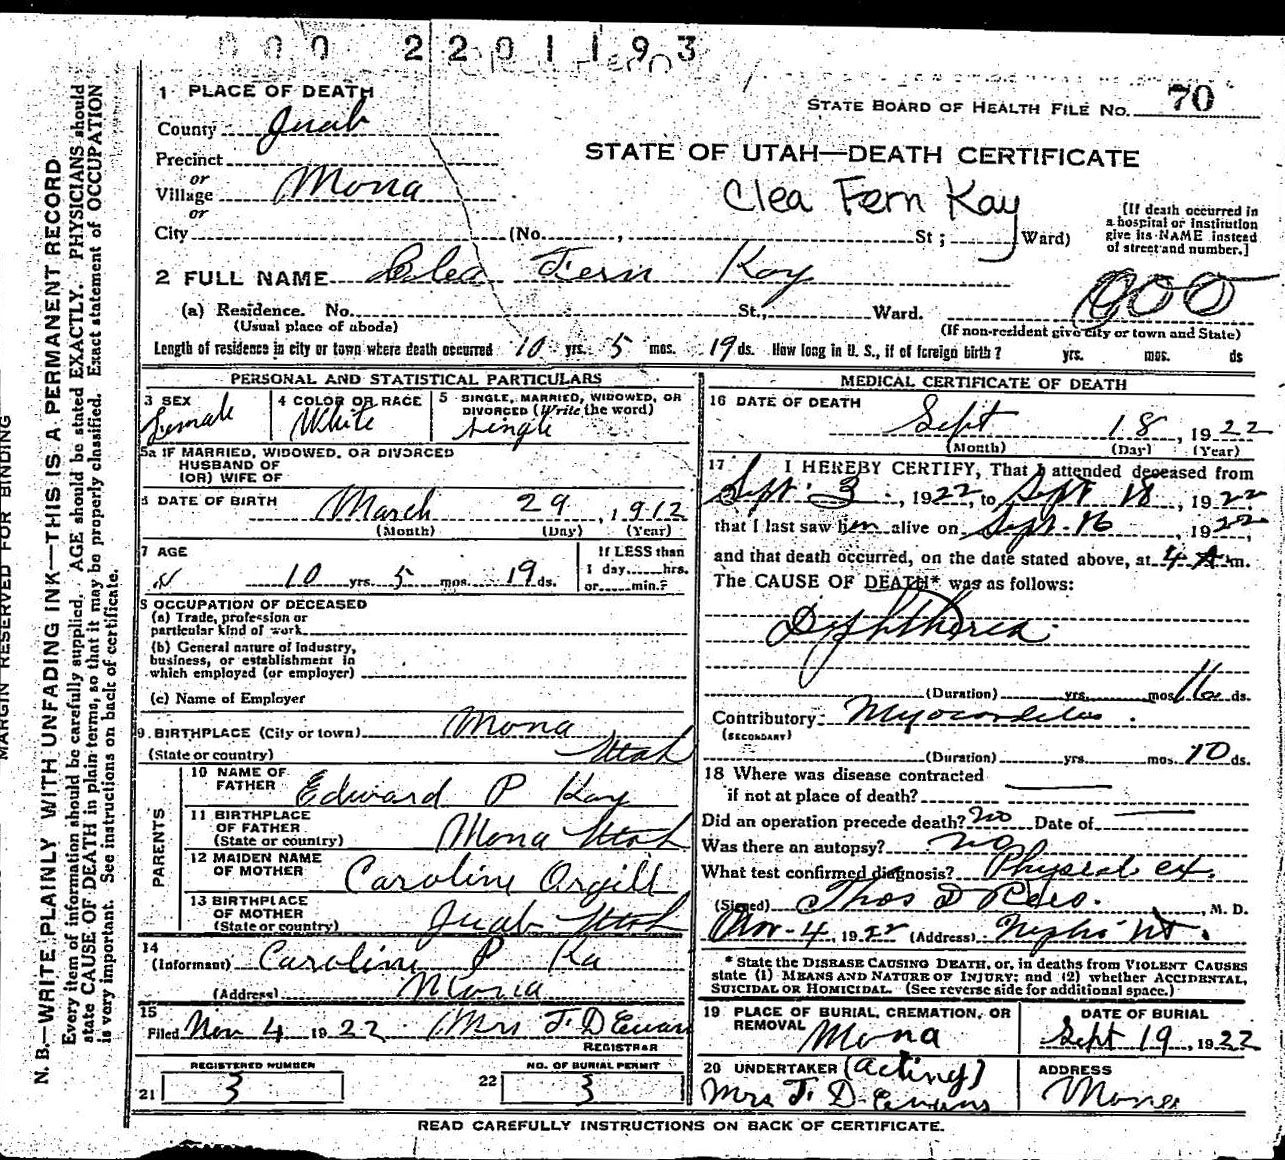 000 2201193
1 PLACE OF DEATH
STATE BOARD OF HEALTH FILE No. 70
County Juab
STATE OF UTAH—DEATH CERTIFICATE
Precinct
or
Village Mona
Clea Fern Kay
or
City (No. , St; Ward)
[If death occurred in
a hospital or institution
give its NAME instead
of street and number.]
2 FULL NAME Clea Fern Kay
000
(a) Residence. No. St., Ward.
(Usual place of abode) (If non-resident give city or town and State)
Length of residence in city or town where death occurred 10 yrs. 5 mos. 19 ds. How long in U. S., if of foreign birth? yrs. mos. ds
PERSONAL AND STATISTICAL PARTICULARS
3 SEX Female
4 COLOR OR RACE White
5 SINGLE, MARRIED, WIDOWED, OR
DIVORCED (Write the word)
Single
5a IF MARRIED, WIDOWED, OR DIVORCED
HUSBAND OF
(OR) WIFE OF
6 DATE OF BIRTH March 29, 1912
(Month) (Day) (Year)
7 AGE
10 yrs. 5 mos. 19 ds.
If LESS than
1 day hrs.
or min.?
8 OCCUPATION OF DECEASED
(a) Trade, profession or
particular kind of work
(b) General nature of industry,
business, or establishment in
which employed (or employer)
(c) Name of Employer
9 BIRTHPLACE (City or town) Mona
(State or country) Utah
PARENTS
10 NAME OF
FATHER Edward P Kay
11 BIRTHPLACE
OF FATHER
(State or country) Mona Utah
12 MAIDEN NAME
OF MOTHER Caroline Orgill
13 BIRTHPLACE
OF MOTHER
(State or country) Juab Utah
14
(Informant) Caroline P Ka
(Address) Mona
15
Filed Nov 4 1922 Mrs J. D Evans
REGISTRAR
REGISTERED NUMBER
21 3
NO. OF BURIAL PERMIT
22 3
MEDICAL CERTIFICATE OF DEATH
16 DATE OF DEATH
Sept 18, 1922
(Month) (Day) (Year)
17 I HEREBY CERTIFY, That I attended deceased from
Sept. 3, 1922, to Sept 18, 1922
that I last saw her alive on Sept. 16, 1922,
and that death occurred, on the date stated above, at 4 A m.
The CAUSE OF DEATH* was as follows:
Diphtheria
(Duration) yrs. mos. 16 ds.
Contributory Myocarditis.
(SECONDARY)
(Duration) yrs. mos. 10 ds.
18 Where was disease contracted
if not at place of death?
Did an operation precede death? no Date of
Was there an autopsy? no
What test confirmed diagnosis? Physical ex.
(Signed) Thos D Rees., M. D.
Nov-4, 1922 (Address) Nephi Ut.
* State the DISEASE CAUSING DEATH, or, in deaths from VIOLENT CAUSES
state (1) MEANS AND NATURE OF INJURY; and (2) whether ACCIDENTAL,
SUICIDAL OR HOMICIDAL. (See reverse side for additional space.)
19 PLACE OF BURIAL, CREMATION, OR
REMOVAL Mona
DATE OF BURIAL
Sept 19, 1922
20 UNDERTAKER (acting)
Mrs J. D. Evans
ADDRESS
Mona
READ CAREFULLY INSTRUCTIONS ON BACK OF CERTIFICATE.
MARGIN RESERVED FOR BINDING
N. B.—WRITE PLAINLY WITH UNFADING INK—THIS IS A PERMANENT RECORD
Every item of information should be carefully supplied. AGE should be stated EXACTLY. PHYSICIANS should
state CAUSE OF DEATH in plain terms, so that it may be properly classified. Exact statement of OCCUPATION
is very important. See instructions on back of certificate.